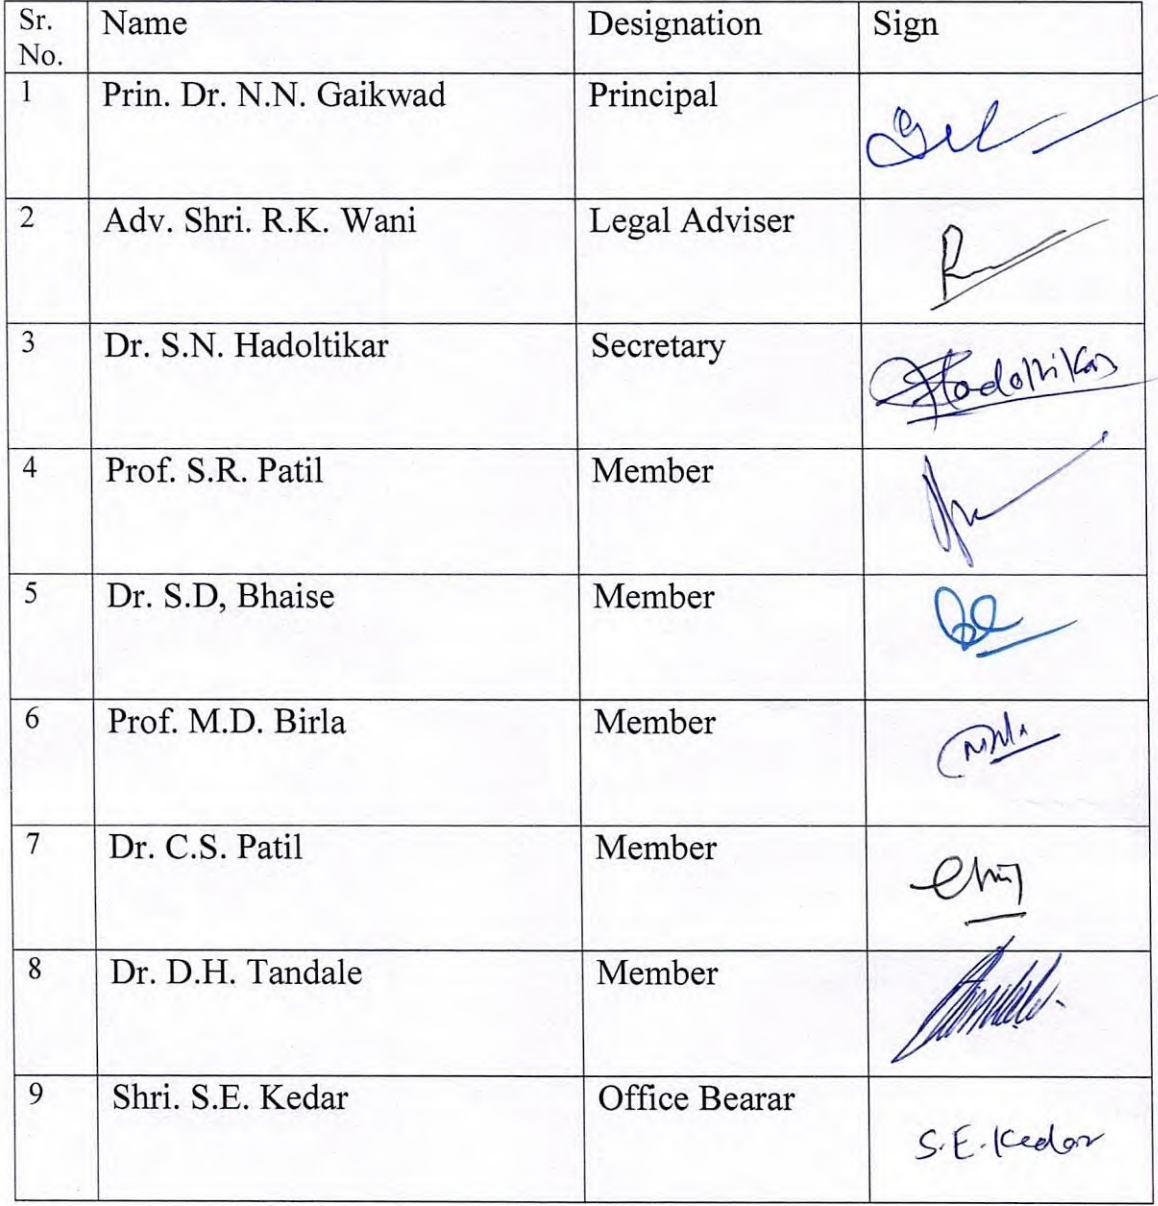 Sr. No. Name Designation Sign
1 Prin. Dr. N.N. Gaikwad Principal
2 Adv. Shri. R.K. Wani Legal Adviser
3 Dr. S.N. Hadoltikar Secretary Hadoltikar
4 Prof. S.R. Patil Member
5 Dr. S.D, Bhaise Member
6 Prof. M.D. Birla Member
7 Dr. C.S. Patil Member
8 Dr. D.H. Tandale Member
9 Shri. S.E. Kedar Office Bearar S.E. Kedar